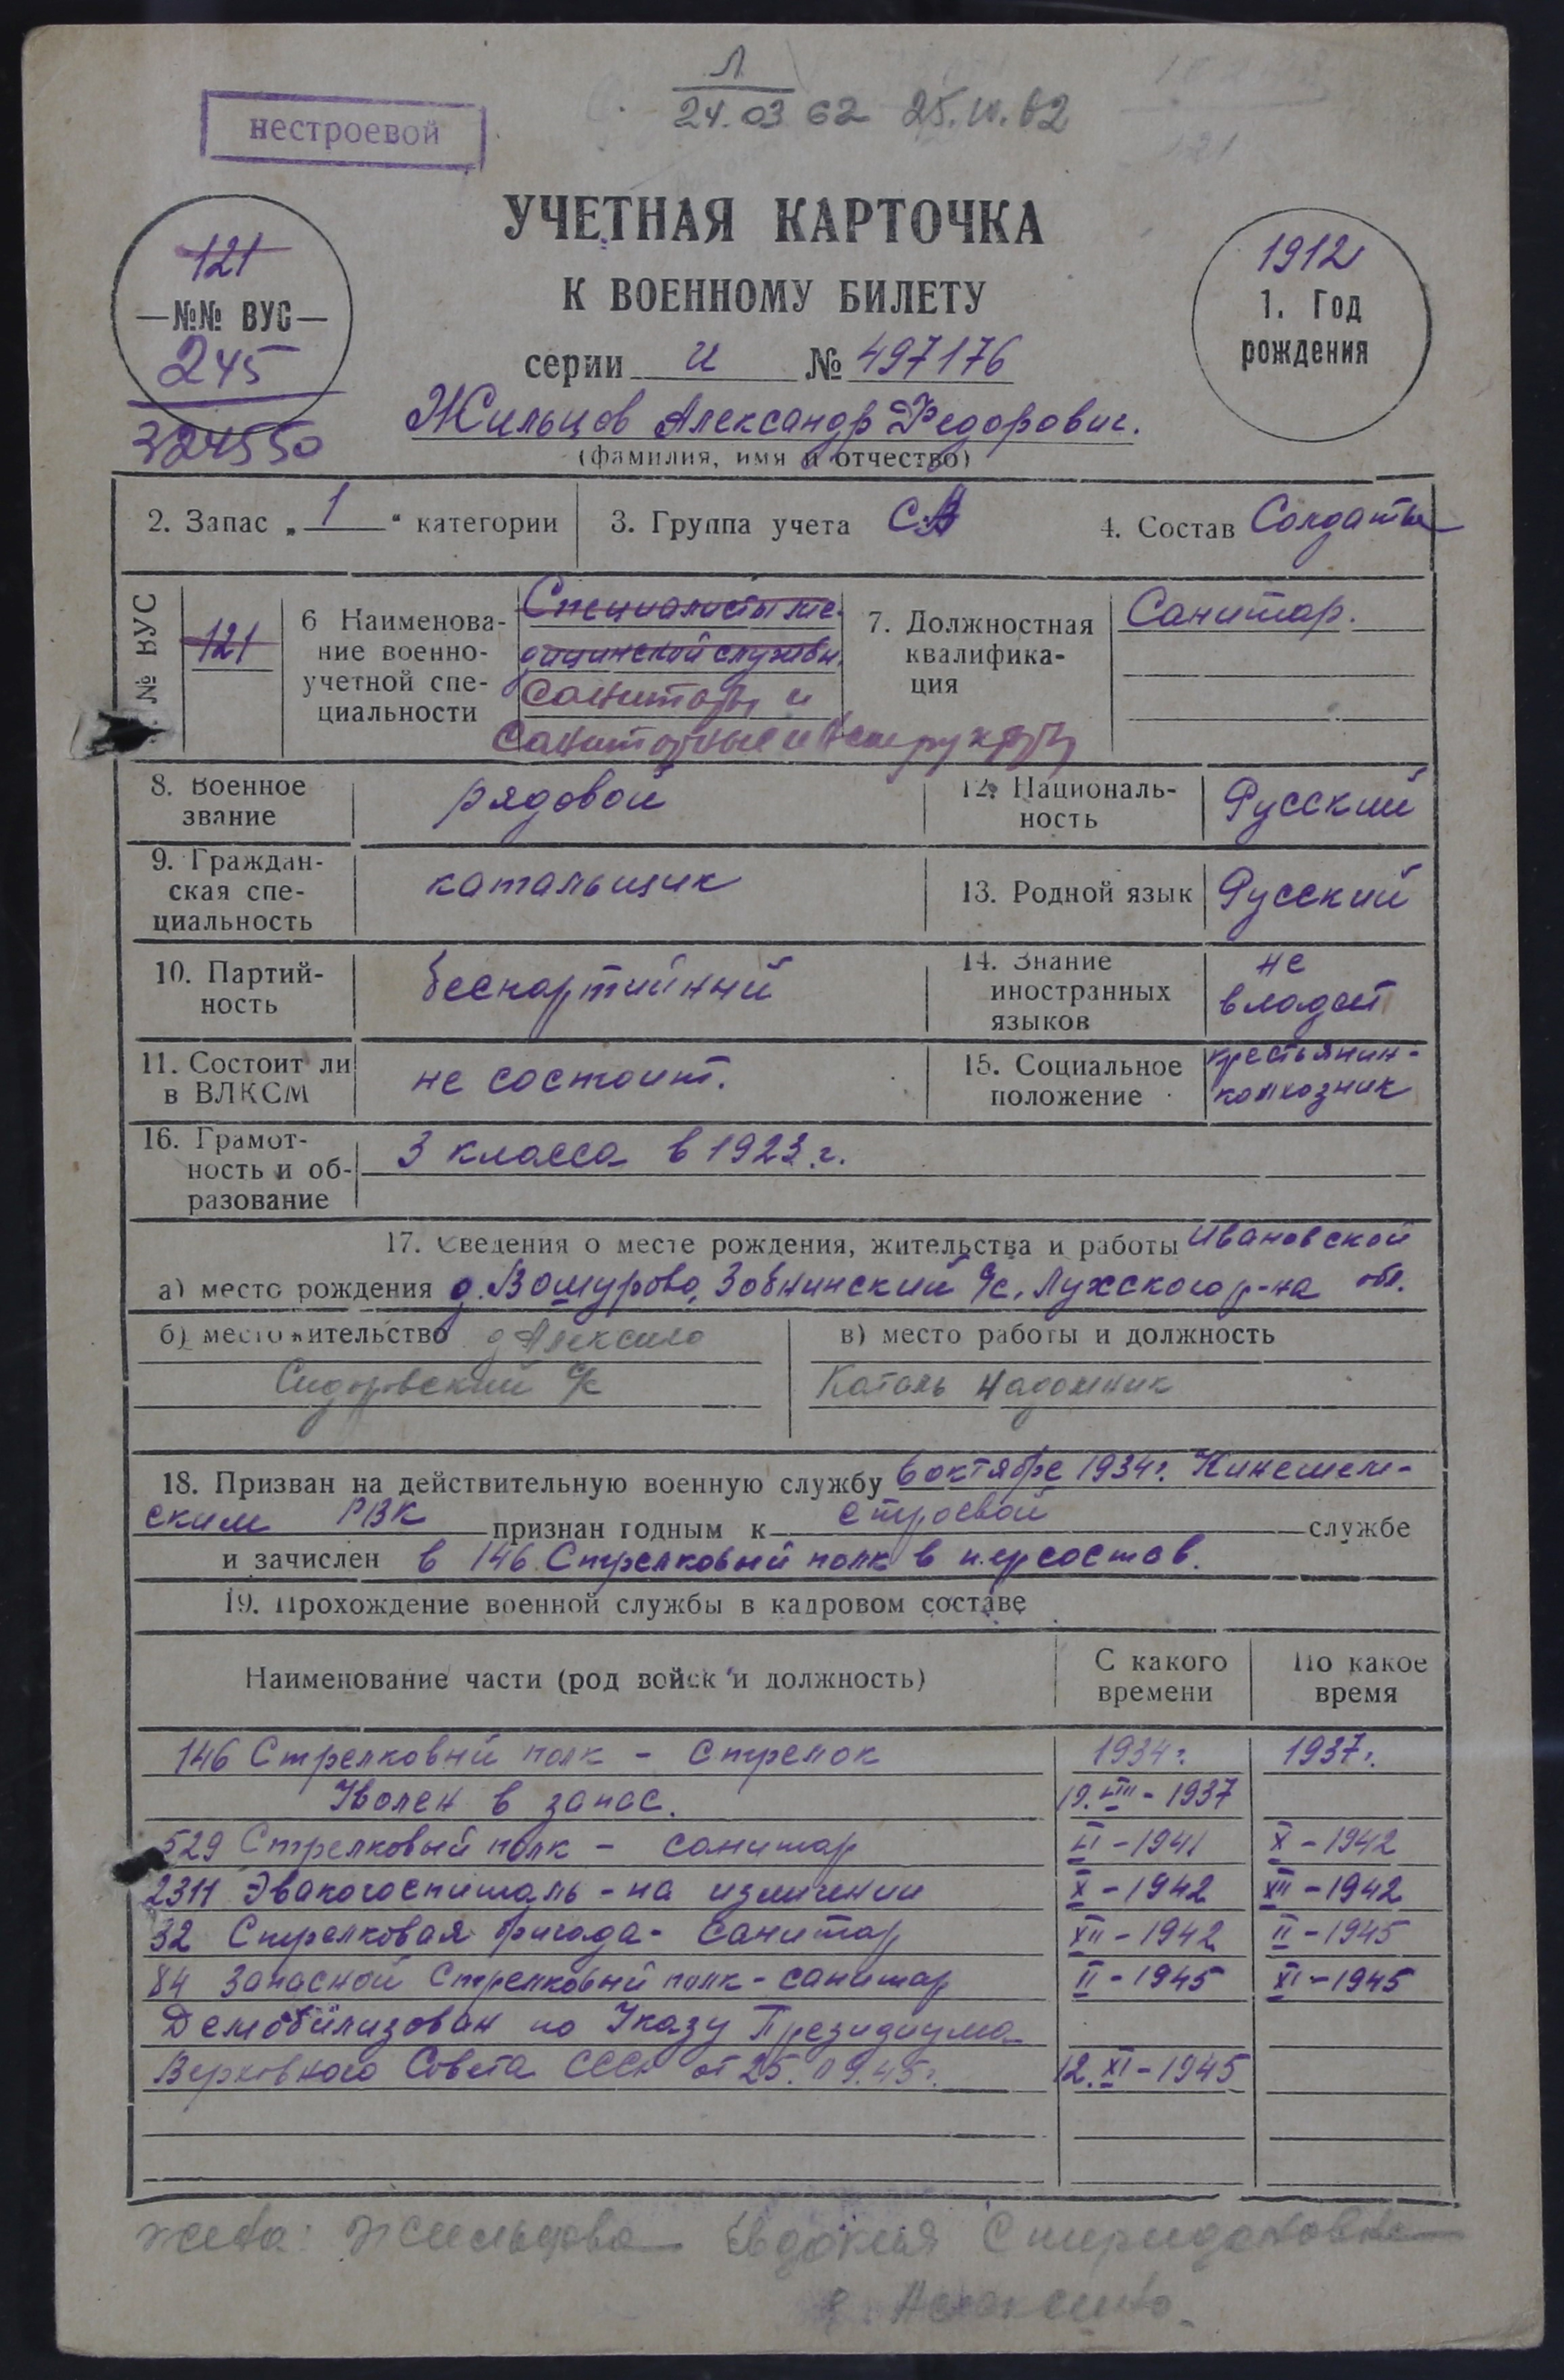 Л
24.03 62 25.IV.62
нестроевой
УЧЕТНАЯ КАРТОЧКА
К ВОЕННОМУ БИЛЕТУ
серии И № 497176
121
—№№ ВУС—
245
324550
1912
1. Год
рождения
Жильцов Александр Федорович.
(фамилия, имя и отчество)
2. Запас „1“ категории
3. Группа учета СА
4. Состав Солдаты
№ ВУС
121
6 Наименова-
ние военно-
учетной спе-
циальности
Специалисты ме-
дицинской службы.
Санитары и
санитарные инструкторы
7. Должностная
квалифика-
ция
Санитар.
8. Военное
звание
рядовой
12. Националь-
ность
Русский
9. Граждан-
ская спе-
циальность
катальщик
13. Родной язык
Русский
10. Партий-
ность
беспартийный
14. Знание
иностранных
языков
не
владеет
11. Состоит ли
в ВЛКСМ
не состоит.
15. Социальное
положение
крестьянин-
колхозник
16. Грамот-
ность и об-
разование
3 класса в 1923 г.
17. Сведения о месте рождения, жительства и работы Ивановской
а) место рождения д. Вошурово, Зобнинский с/с, Лухского р-на обл.
б) местожительство д Алексино
Сидоровский с/с
в) место работы и должность
Каталь надомник
18. Призван на действительную военную службу в октябре 1934г. Кинешем-
ским РВК признан годным к строевой службе
и зачислен в 146 Стрелковый полк в п.ерсостав.
19. Прохождение военной службы в кадровом составе
Наименование части (род войск и должность)
С какого
времени
По какое
время
146 Стрелковый полк - Стрелок 1934г. 1937г.
Уволен в запас. 19.XII - 1937
529 Стрелковый полк - санитар VI - 1941 X - 1942
2311 Эвакогоспиталь - на излечении X - 1942 XII - 1942
32 Стрелковая бригада - санитар XII - 1942 II - 1945
84 Запасной Стрелковый полк - санитар II - 1945 XI - 1945
Демобилизован по Указу Президиума
Верховного Совета СССР от 25.09.45г. 12.XI - 1945
жена: Жильцова Евдокия Спиридоновна
д. Алексино